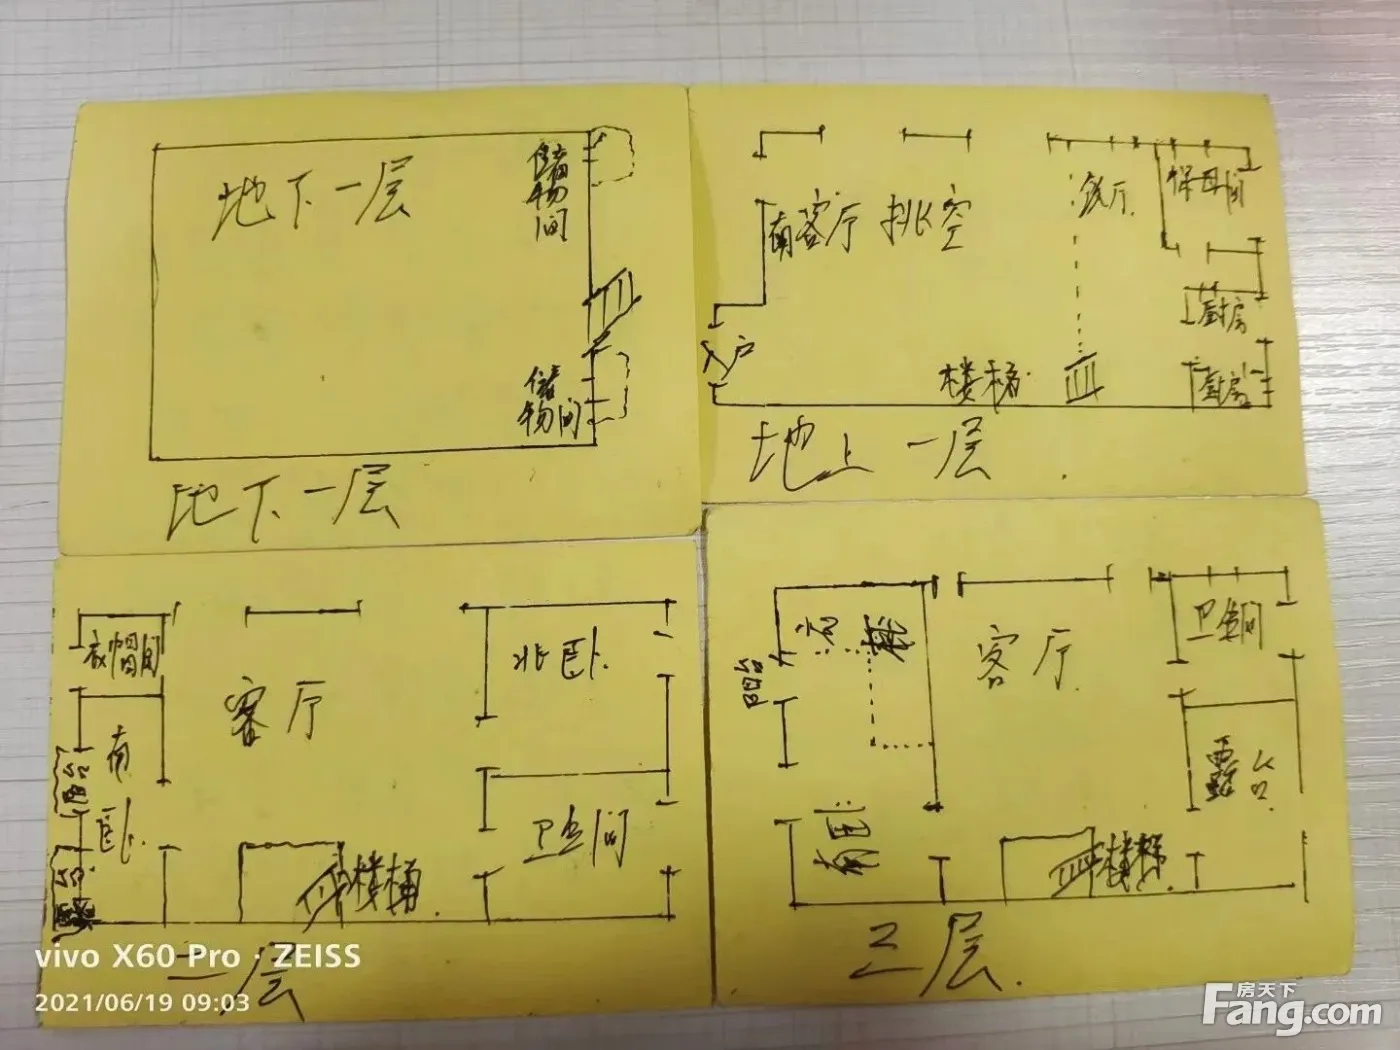 地下一层
储物间
储物间
地下一层
南客厅 挑空
餐厅
保母间
厨房
厨房
入户
楼梯
地上一层
衣帽间
南卧
阳台
露台
客厅
北卧
卫生间
楼梯
二层
阳台
挑空
南卧
客厅
卫生间
露台
楼梯
三层
vivo X60 Pro · ZEISS
2021/06/19 09:03
房天下
Fang.com